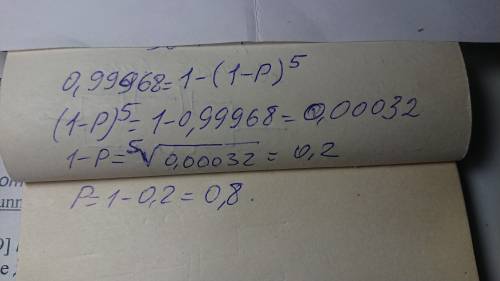 0,99968=1-(1-P)^5
(1-P)^5=1-0,99968=0,00032
1-P=⁵√0,00032=0,2
P=1-0,2=0,8.